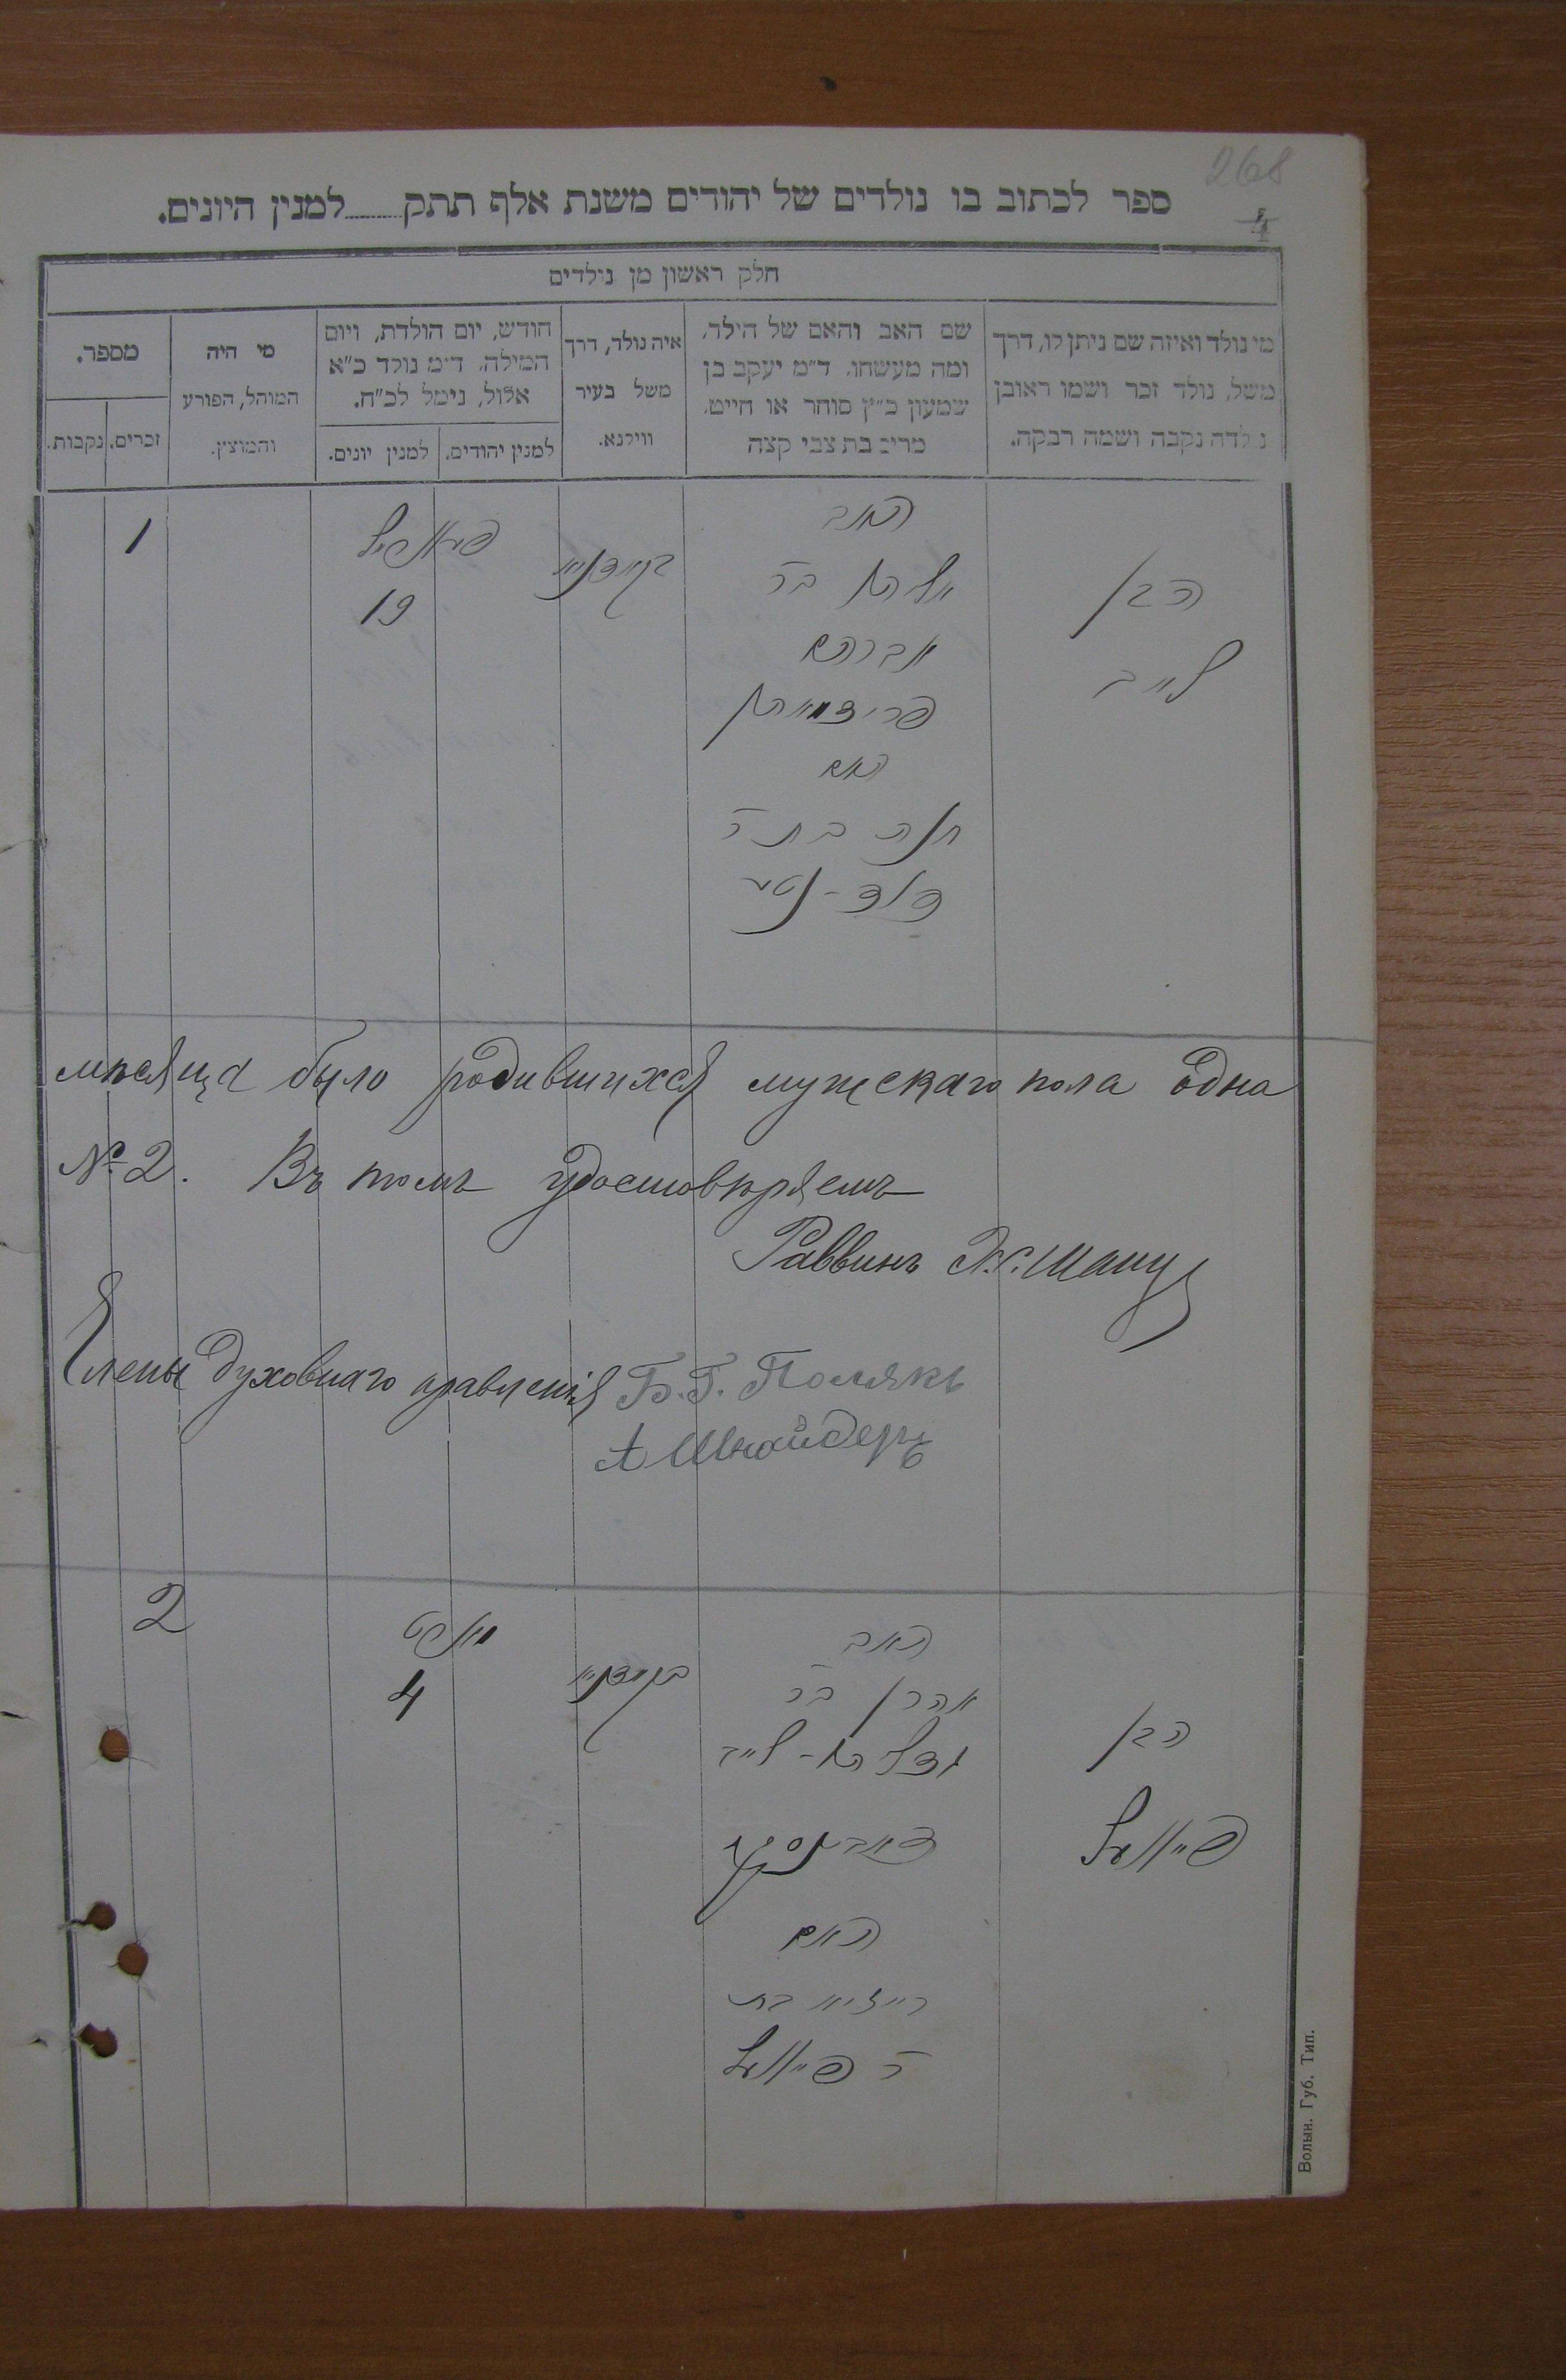 268
4
ספר לכתוב בו נולדים של יהודים משנת אלף תתק......למנין היונים.
חלק ראשון מן נולדים
מי נולד ואיזה שם ניתן לו, דרך
משל, נולד זכר ושמו ראובן
נולדה נקבה ושמה רבקה.
שם האב והאם של הילד,
ומה מעשהו. ד״מ יעקב בן
שמעון כ״ץ סוחר או חייט.
מרים בת צבי קצה
איה נולד, דרך
משל בעיר
ווילנא.
חודש, יום הולדת, ויום
המילה. ד״מ נולד כ״א
אלול, נימל לכ״ח.
למנין יהודים.
למנין יונים.
מי היה
המוהל, הפורע
והמוצץ.
מספר.
זכרים.
נקבות.
הבן
לייב
האב
בר
אברהם
האם
חנה בת ר
19
1
мѣсяца было родившихся мужскаго пола одна
№ 2. Въ томъ удостовѣряемъ
Раввинъ
Члены духовнаго правленія Б. Г. Полякъ
А Шнайдеръ
הבן
פייוול
האב
אהרן בר
לייב
האם
בת
ר פייוול
4
2
Волын. Губ. Тип.